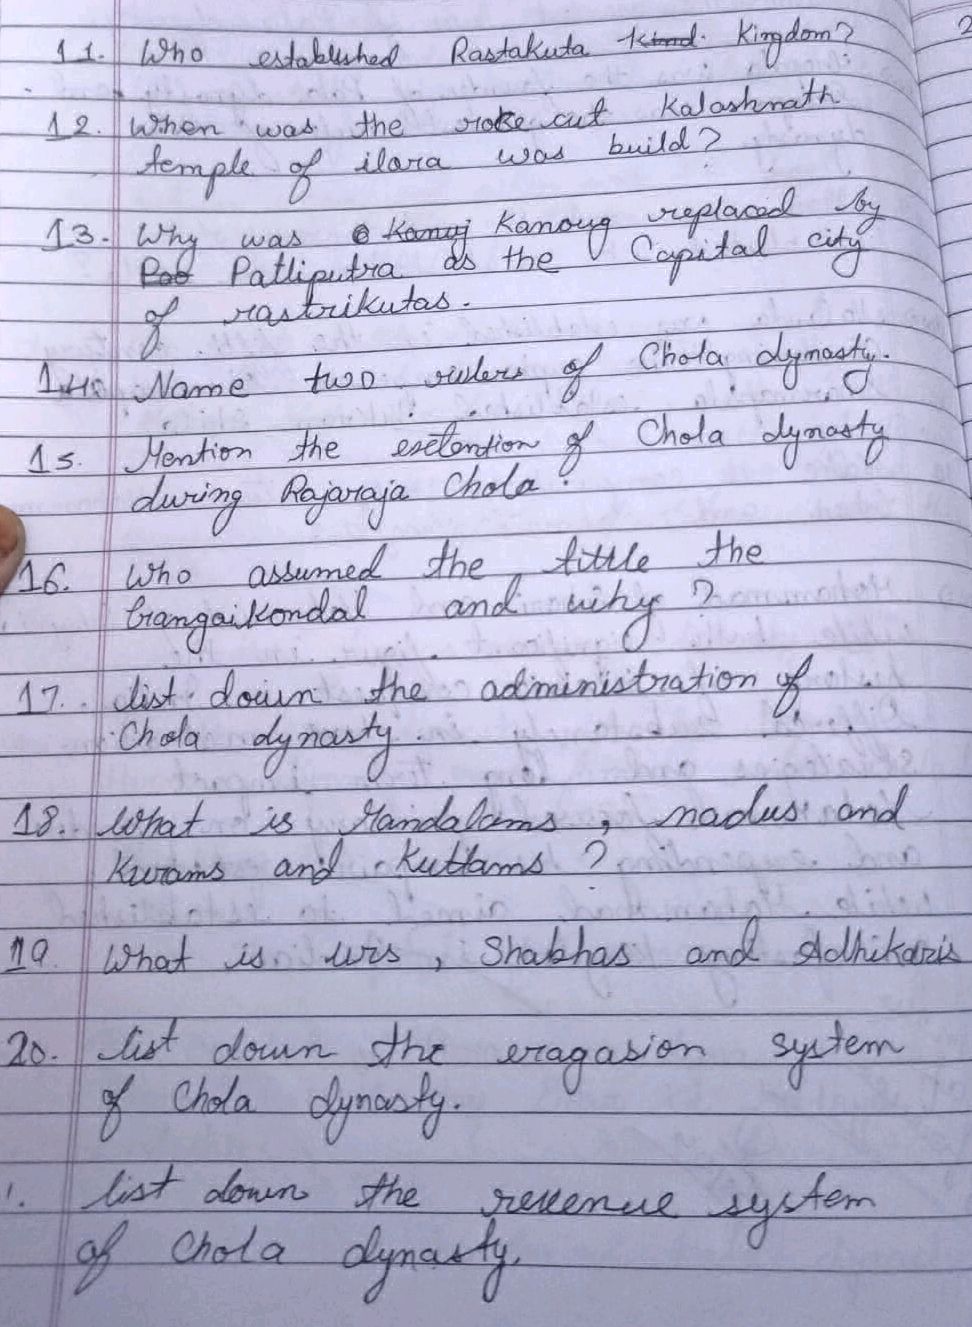 11. Who established Rastakuta Kind. Kingdom?
12. When was the roke cut Kalashnath
temple of ilara was build?
13. Why was Kanuj Kanoug replaced by
Patliputra as the Capital city
of rastrikutas.
14. Name two rulers of Chola dynasty.
15. Mention the exetention of Chola dynasty
during Rajaraja Chola.
16. Who assumed the tittle the
Gangaikondal and why?
17. list down the administration of
Chola dynasty
18. What is Mandalams, nadus and
Kurams and Kuttams?
19. What is urs, Shabhas and Adhikaris
20. list down the eragasion system
of Chola dynasty.
1. list down the revenue system
of Chola dynasty.